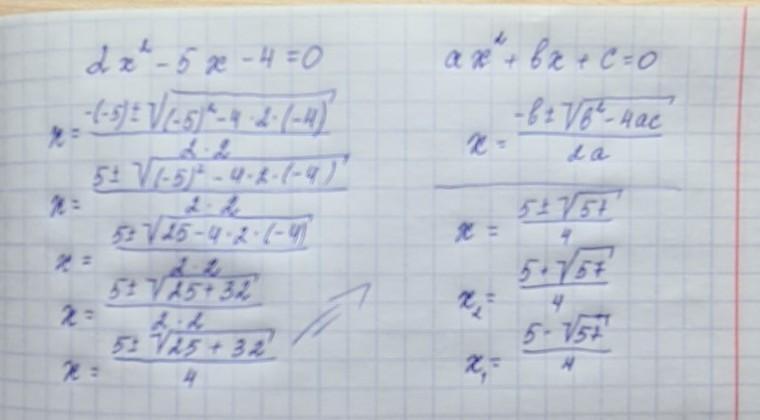 2x² - 5x - 4 = 0
x = (-(-5) ± √((-5)² - 4 · 2 · (-4))) / (2 · 2)
x = (5 ± √((-5)² - 4 · 2 · (-4))) / (2 · 2)
x = (5 ± √(25 - 4 · 2 · (-4))) / (2 · 2)
x = (5 ± √(25 + 32)) / (2 · 2)
x = (5 ± √(25 + 32)) / 4
ax² + bx + c = 0
x = (-b ± √(b² - 4ac)) / (2a)
x = (5 ± √57) / 4
x₂ = (5 + √57) / 4
x₁ = (5 - √57) / 4